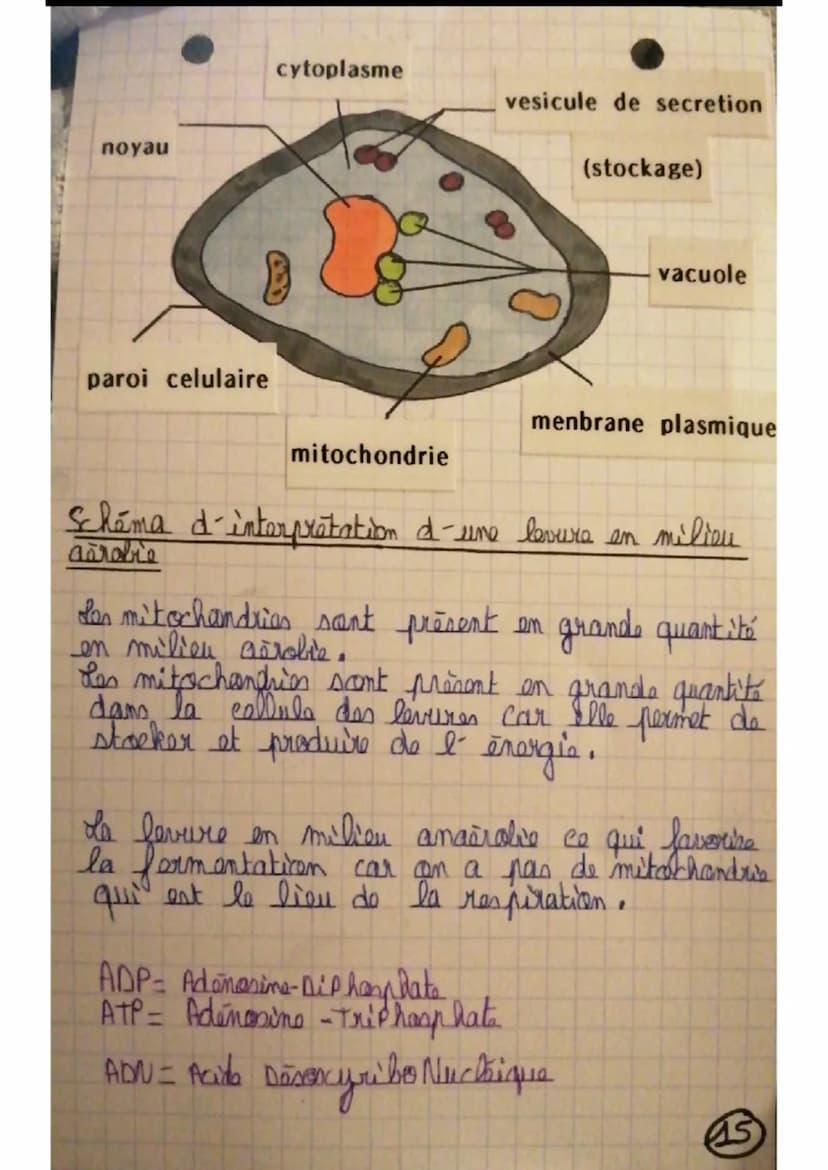 cytoplasme
vesicule de secretion
noyau
(stockage)
vacuole
paroi celulaire
menbrane plasmique
mitochondrie
Schéma d-interprétation d-une levure en milieu
aérobie
Les mitochondries sont présent en grande quantité
en milieu aérobie.
Les mitochondries sont présent en grande quantité
dans la cellule des levures car elle permet de
stocker et produire de l-énergie.
La levure en milieu anaérobie ce qui favorise
la fermentation car on a pas de mitochondrie
qui est le lieu de la respiration.
ADP= Adénosine-DiPhosphate
ATP= Adénosine-TriPhosphate
ADN= Acide DésoxyriboNucléique
15